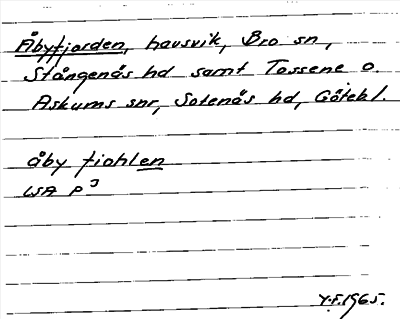 Åbyfjorden, havsvik, Bro sn,
Stångenäs hd samt Tossene o.
Askums snr, Sotenäs hd, Götebl.
åby fiohlen
LSA P
Y.F. 1965.